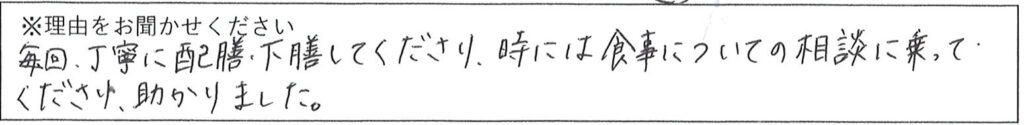 ※理由をお聞かせください
毎回、丁寧に配膳・下膳してくださり、時には食事についての相談に乗って
くださり、助かりました。